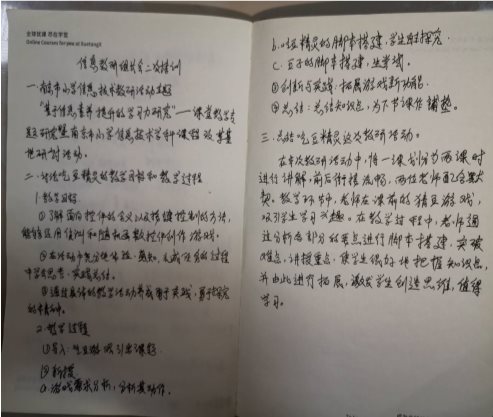 全球优课 尽在学堂
Online Courses for you at Xuetangx
信息教研组长会二次培训
一.南京市小学信息技术教研活动主题
"基于信息素养提升的学习力研究"——课堂教学专
题研究暨南京市小学信息技术学科课程改革基
地研讨活动。
二.讨论吃豆精灵的教学目标和教学过程
1.教学目标
①了解面向控件的含义以及按键控制的方法,
能够运用侦测和随机函数控件创作游戏。
②在活动中充分地体验、感知,完成任务的过程
中学会思考、实践总结。
③通过具体的教学活动养成勇于实践、勇于探究
的精神。
2.教学过程
①导入:吃豆游戏引出课题
②新授
a.游戏需求分析,分析其动作。
b.吃豆精灵的脚本搭建,学生自主探究
c.豆子的脚本搭建,半尝试。
③创新与实践:拓展游戏新功能
④总结:总结知识点,为下节课作铺垫。
三.总结吃豆精灵这次教研活动。
在本次教研活动中,将一课划分为两课时
进行讲解,前后衔接流畅,两位老师配合默
契。教学环节中,老师在课前的猜豆游戏,
吸引学生学习兴趣。在教学过程中,老师通
过分析各部分的要点进行脚本搭建,突破
难点,讲授重点,使学生很好地把握知识点,
并由此进行拓展,激发学生创造思维,值得
学习。